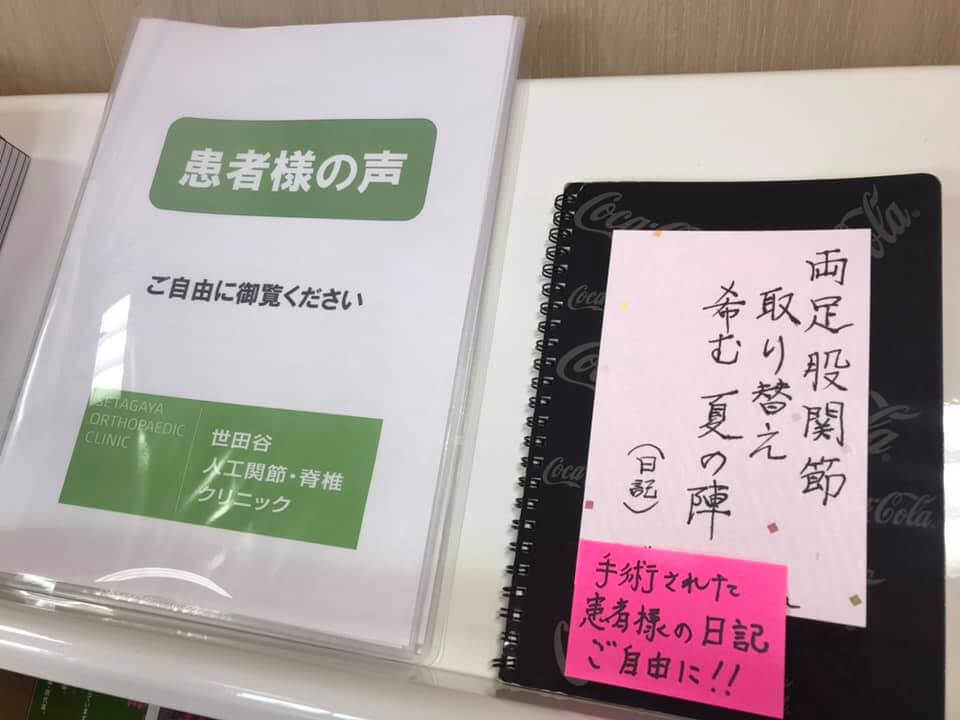 患者様の声
ご自由に御覧ください
SETAGAYA
ORTHOPAEDIC
CLINIC
世田谷
人工関節・脊椎
クリニック
両足股関節
取り替え
希む 夏の陣
(日記)
手術された
患者様の日記
ご自由に!!
Coca-Cola
Coca-Cola